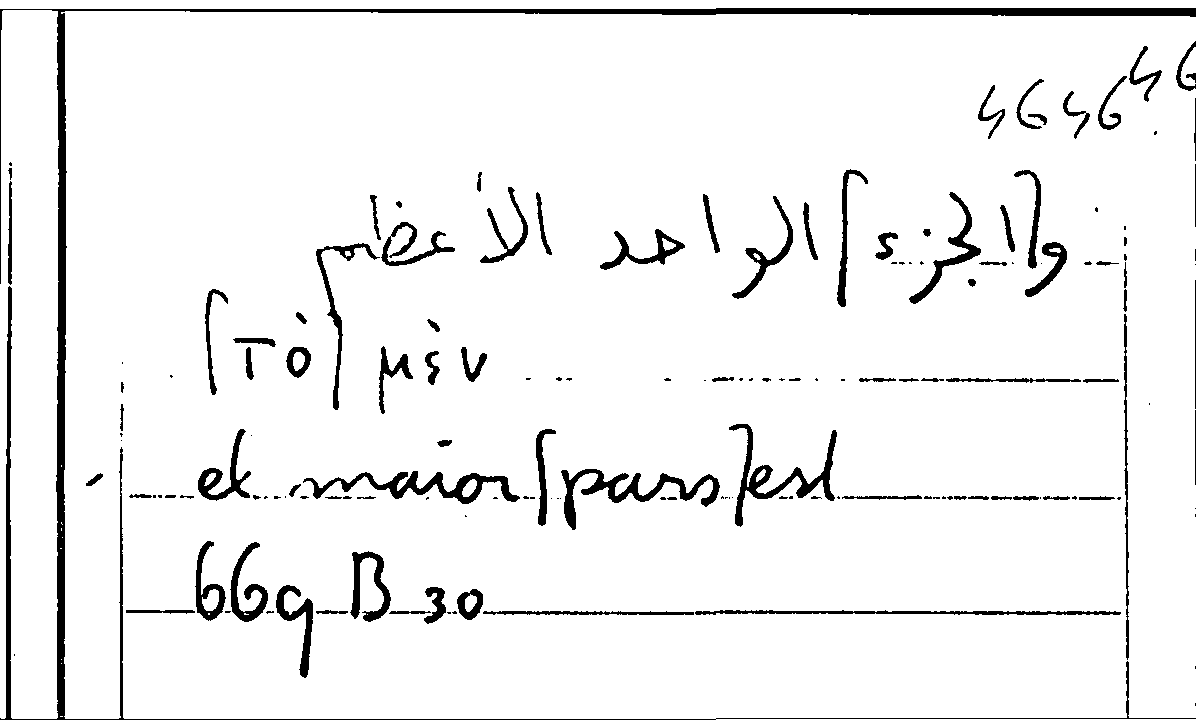 و[الجزء] الواحد الأعظم
[τὸ] μὲν
et maior [pars] est
669 B 30